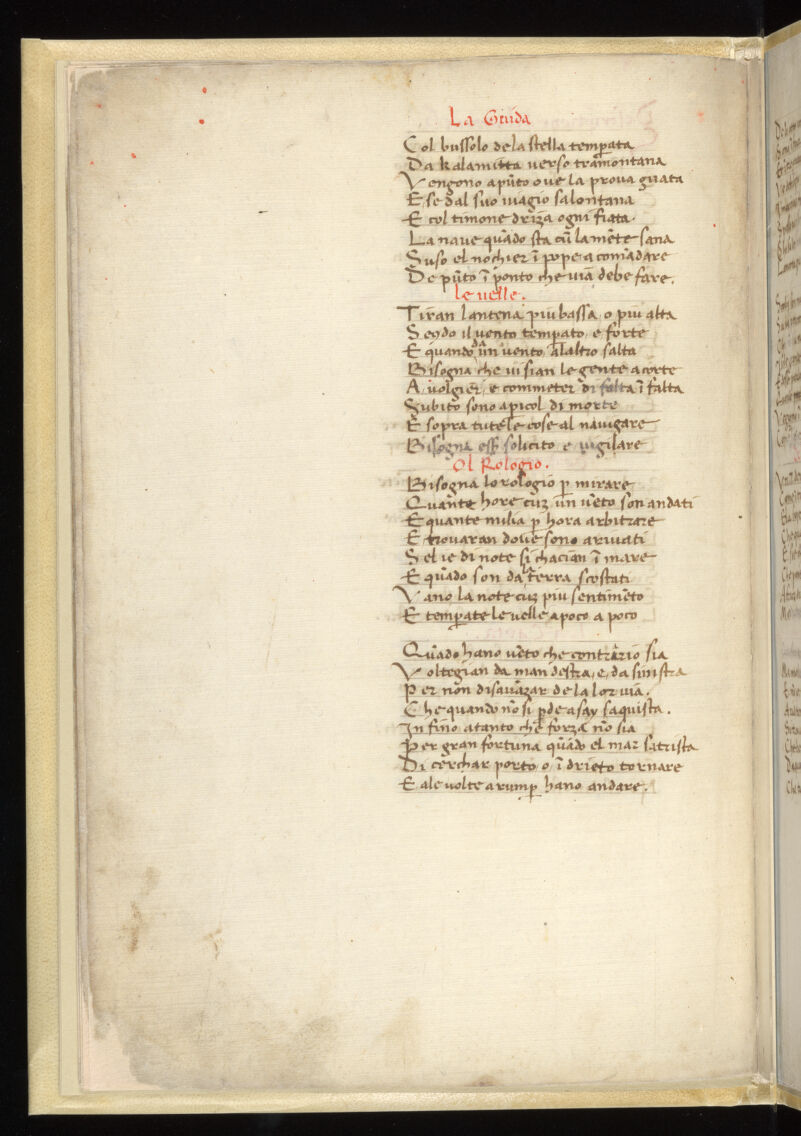 La Guida
Col bussolo dela stella temp̱ata
Da kalamitta uerso tramontana
Vengono apũto oue la proua guata
E se dal suo uiagio salontana
E col timone driza ogni fiata.
La naue quãdo sta cũ la mẽte sana
Suso el nochier ĩ pope a comãdare
De pũto ĩ ponto che uia debe fare.
le uelle.
Tiran lantena piu bassa, o piu alta
Secõdo il uento temp̱ato, e forte
E quando da un uento alaltro salta
Bisogna che ui sian le gente acorte
A uolgier, e commeter di falta ĩ falta
Subito sono apicol di morte
E sopra tute le cose al nauigare
Bisogna ess̃ solicito e uigilare
Ol Rologio.
Bisogna lo rologio p̱ mirare
Quante hore cuz un uẽto son andati
E quante milia p̱ hora arbitrare
E trouaran doue sono ariuati
Sel ie di note si chacian ĩ mare
E quãdo son da terra scostati
Vano la note cuz piu sentimẽto
E temp̱ate le uelle apoco a poco
Quãdo hano uẽto che contrario sia
Voltegian da man destra, e, da sinistra
Per non disauãzar de la lor uia.
Che quando nõ si p̱de asay saquista.
In fino atanto che forza nõ sia
Per gran fortuna quãdo el mar satrista
Di cerchar porto, o ĩ drieto tornare
E ale uolte a rump̱ hano andare.